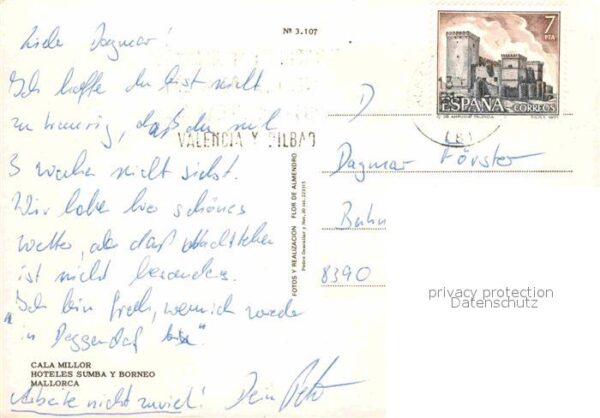 Nº 3.107
Liebe Dagmar!
Ich hoffe du bist nicht
zu traurig, daß du mich
3 Wochen nicht siehst.
Wir haben hier schönes
Wetter, aber das
ist nicht besonders.
"Ich bin froh, wenn ich wieder
in Deggendorf bin".
Arbeite nicht zuviel! Dein Peter
CALA MILLOR
HOTELES SUMBA Y BORNEO
MALLORCA
VALENCIA Y BILBAO
FOTOS Y REALIZACION FLOR DE ALMENDRO
7
PTA
ESPAÑA CORREOS
D
Dagmar Förster
8390
privacy protection
Datenschutz